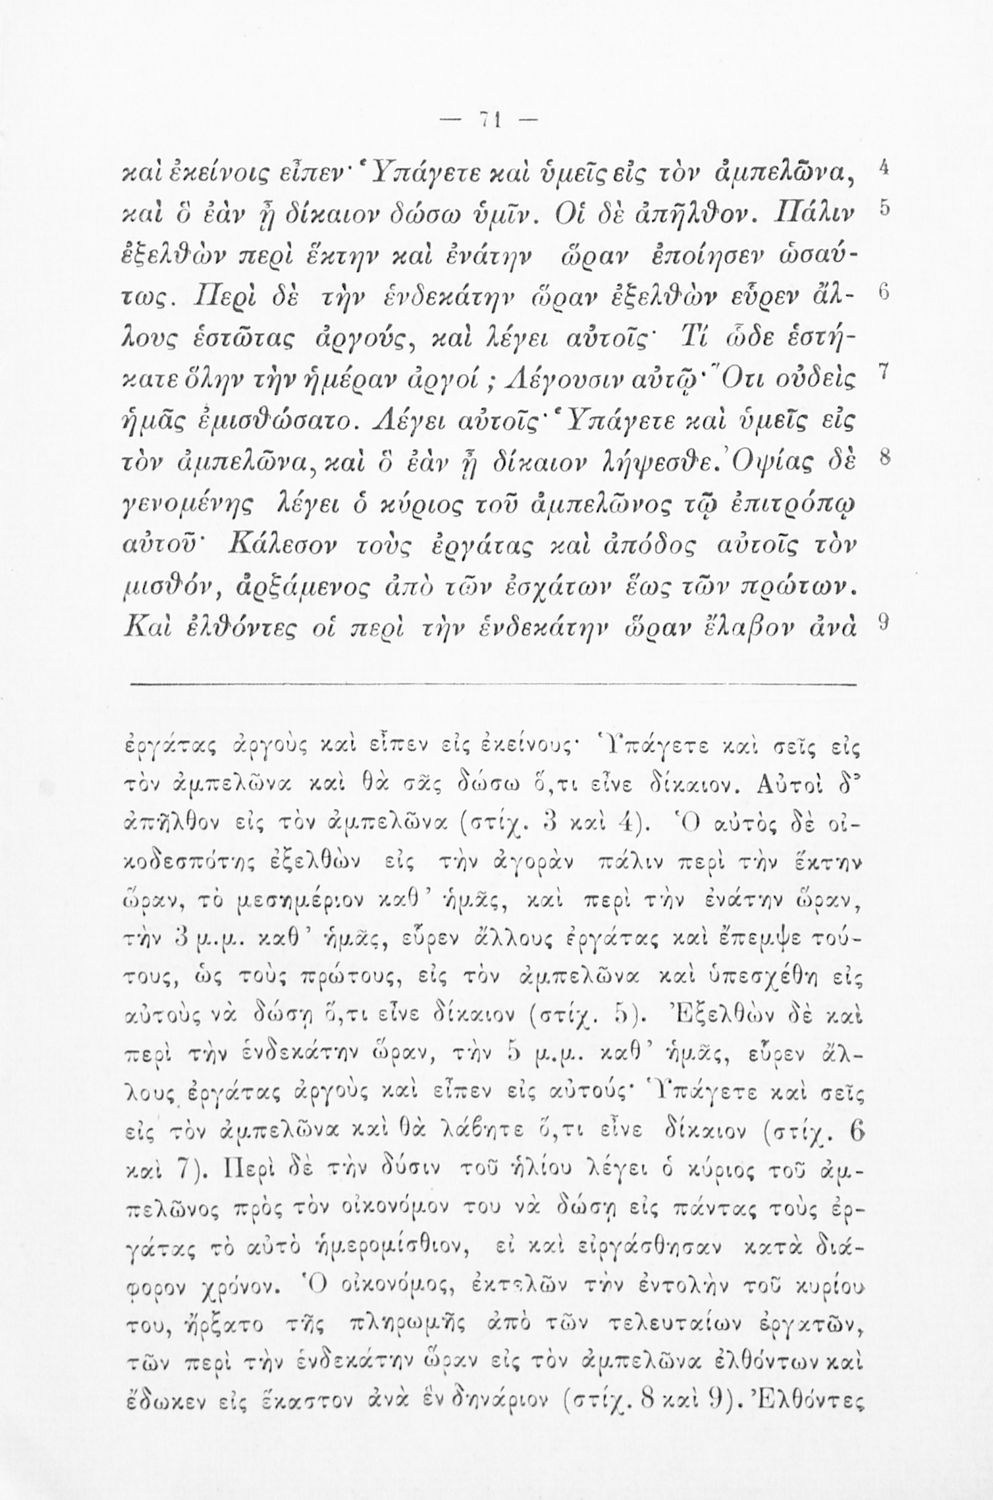 — 71 —
καὶ ἐκείνοις εἶπεν· Ὑπάγετε καὶ ὑμεῖς εἰς τὸν ἀμπελῶνα, 4
καὶ ὃ ἐὰν ᾖ δίκαιον δώσω ὑμῖν. Οἱ δὲ ἀπῆλθον. Πάλιν 5
ἐξελθὼν περὶ ἕκτην καὶ ἐνάτην ὥραν ἐποίησεν ὡσαύ-
τως. Περὶ δὲ τὴν ἑνδεκάτην ὥραν ἐξελθὼν εὗρεν ἄλ- 6
λους ἑστῶτας ἀργούς, καὶ λέγει αὐτοῖς· Τί ὧδε ἑστή-
κατε ὅλην τὴν ἡμέραν ἀργοί; Λέγουσιν αὐτῷ· Ὅτι οὐδεὶς 7
ἡμᾶς ἐμισθώσατο. Λέγει αὐτοῖς· Ὑπάγετε καὶ ὑμεῖς εἰς
τὸν ἀμπελῶνα, καὶ ὃ ἐὰν ᾖ δίκαιον λήψεσθε. Ὀψίας δὲ 8
γενομένης λέγει ὁ κύριος τοῦ ἀμπελῶνος τῷ ἐπιτρόπῳ
αὐτοῦ· Κάλεσον τοὺς ἐργάτας καὶ ἀπόδος αὐτοῖς τὸν
μισθόν, ἀρξάμενος ἀπὸ τῶν ἐσχάτων ἕως τῶν πρώτων.
Καὶ ἐλθόντες οἱ περὶ τὴν ἑνδεκάτην ὥραν ἔλαβον ἀνὰ 9
ἐργάτας ἀργοὺς καὶ εἶπεν εἰς ἐκείνους· Ὑπάγετε καὶ σεῖς εἰς
τὸν ἀμπελῶνα καὶ θὰ σᾶς δώσω ὅ,τι εἶνε δίκαιον. Αὐτοὶ δ'
ἀπῆλθον εἰς τὸν ἀμπελῶνα (στίχ. 3 καὶ 4). Ὁ αὐτὸς δὲ οἰ-
κοδεσπότης ἐξελθὼν εἰς τὴν ἀγορὰν πάλιν περὶ τὴν ἕκτην
ὥραν, τὸ μεσημέριον καθ' ἡμᾶς, καὶ περὶ τὴν ἐνάτην ὥραν,
τὴν 3 μ.μ. καθ' ἡμᾶς, εὗρεν ἄλλους ἐργάτας καὶ ἔπεμψε τού-
τους, ὡς τοὺς πρώτους, εἰς τὸν ἀμπελῶνα καὶ ὑπεσχέθη εἰς
αὐτοὺς νὰ δώσῃ ὅ,τι εἶνε δίκαιον (στίχ. 5). Ἐξελθὼν δὲ καὶ
περὶ τὴν ἑνδεκάτην ὥραν, τὴν 5 μ.μ. καθ' ἡμᾶς, εὗρεν ἄλ-
λους ἐργάτας ἀργοὺς καὶ εἶπεν εἰς αὐτούς· Ὑπάγετε καὶ σεῖς
εἰς τὸν ἀμπελῶνα καὶ θὰ λάβητε ὅ,τι εἶνε δίκαιον (στίχ. 6
καὶ 7). Περὶ δὲ τὴν δύσιν τοῦ ἡλίου λέγει ὁ κύριος τοῦ ἀμ-
πελῶνος πρὸς τὸν οἰκονόμον του νὰ δώσῃ εἰς πάντας τοὺς ἐρ-
γάτας τὸ αὐτὸ ἡμερομίσθιον, εἰ καὶ εἰργάσθησαν κατὰ διά-
φορον χρόνον. Ὁ οἰκονόμος, ἐκτελῶν τὴν ἐντολὴν τοῦ κυρίου
του, ἤρξατο τῆς πληρωμῆς ἀπὸ τῶν τελευταίων ἐργατῶν,
τῶν περὶ τὴν ἑνδεκάτην ὥραν εἰς τὸν ἀμπελῶνα ἐλθόντων καὶ
ἔδωκεν εἰς ἕκαστον ἀνὰ ἓν δηνάριον (στίχ. 8 καὶ 9). Ἐλθόντες